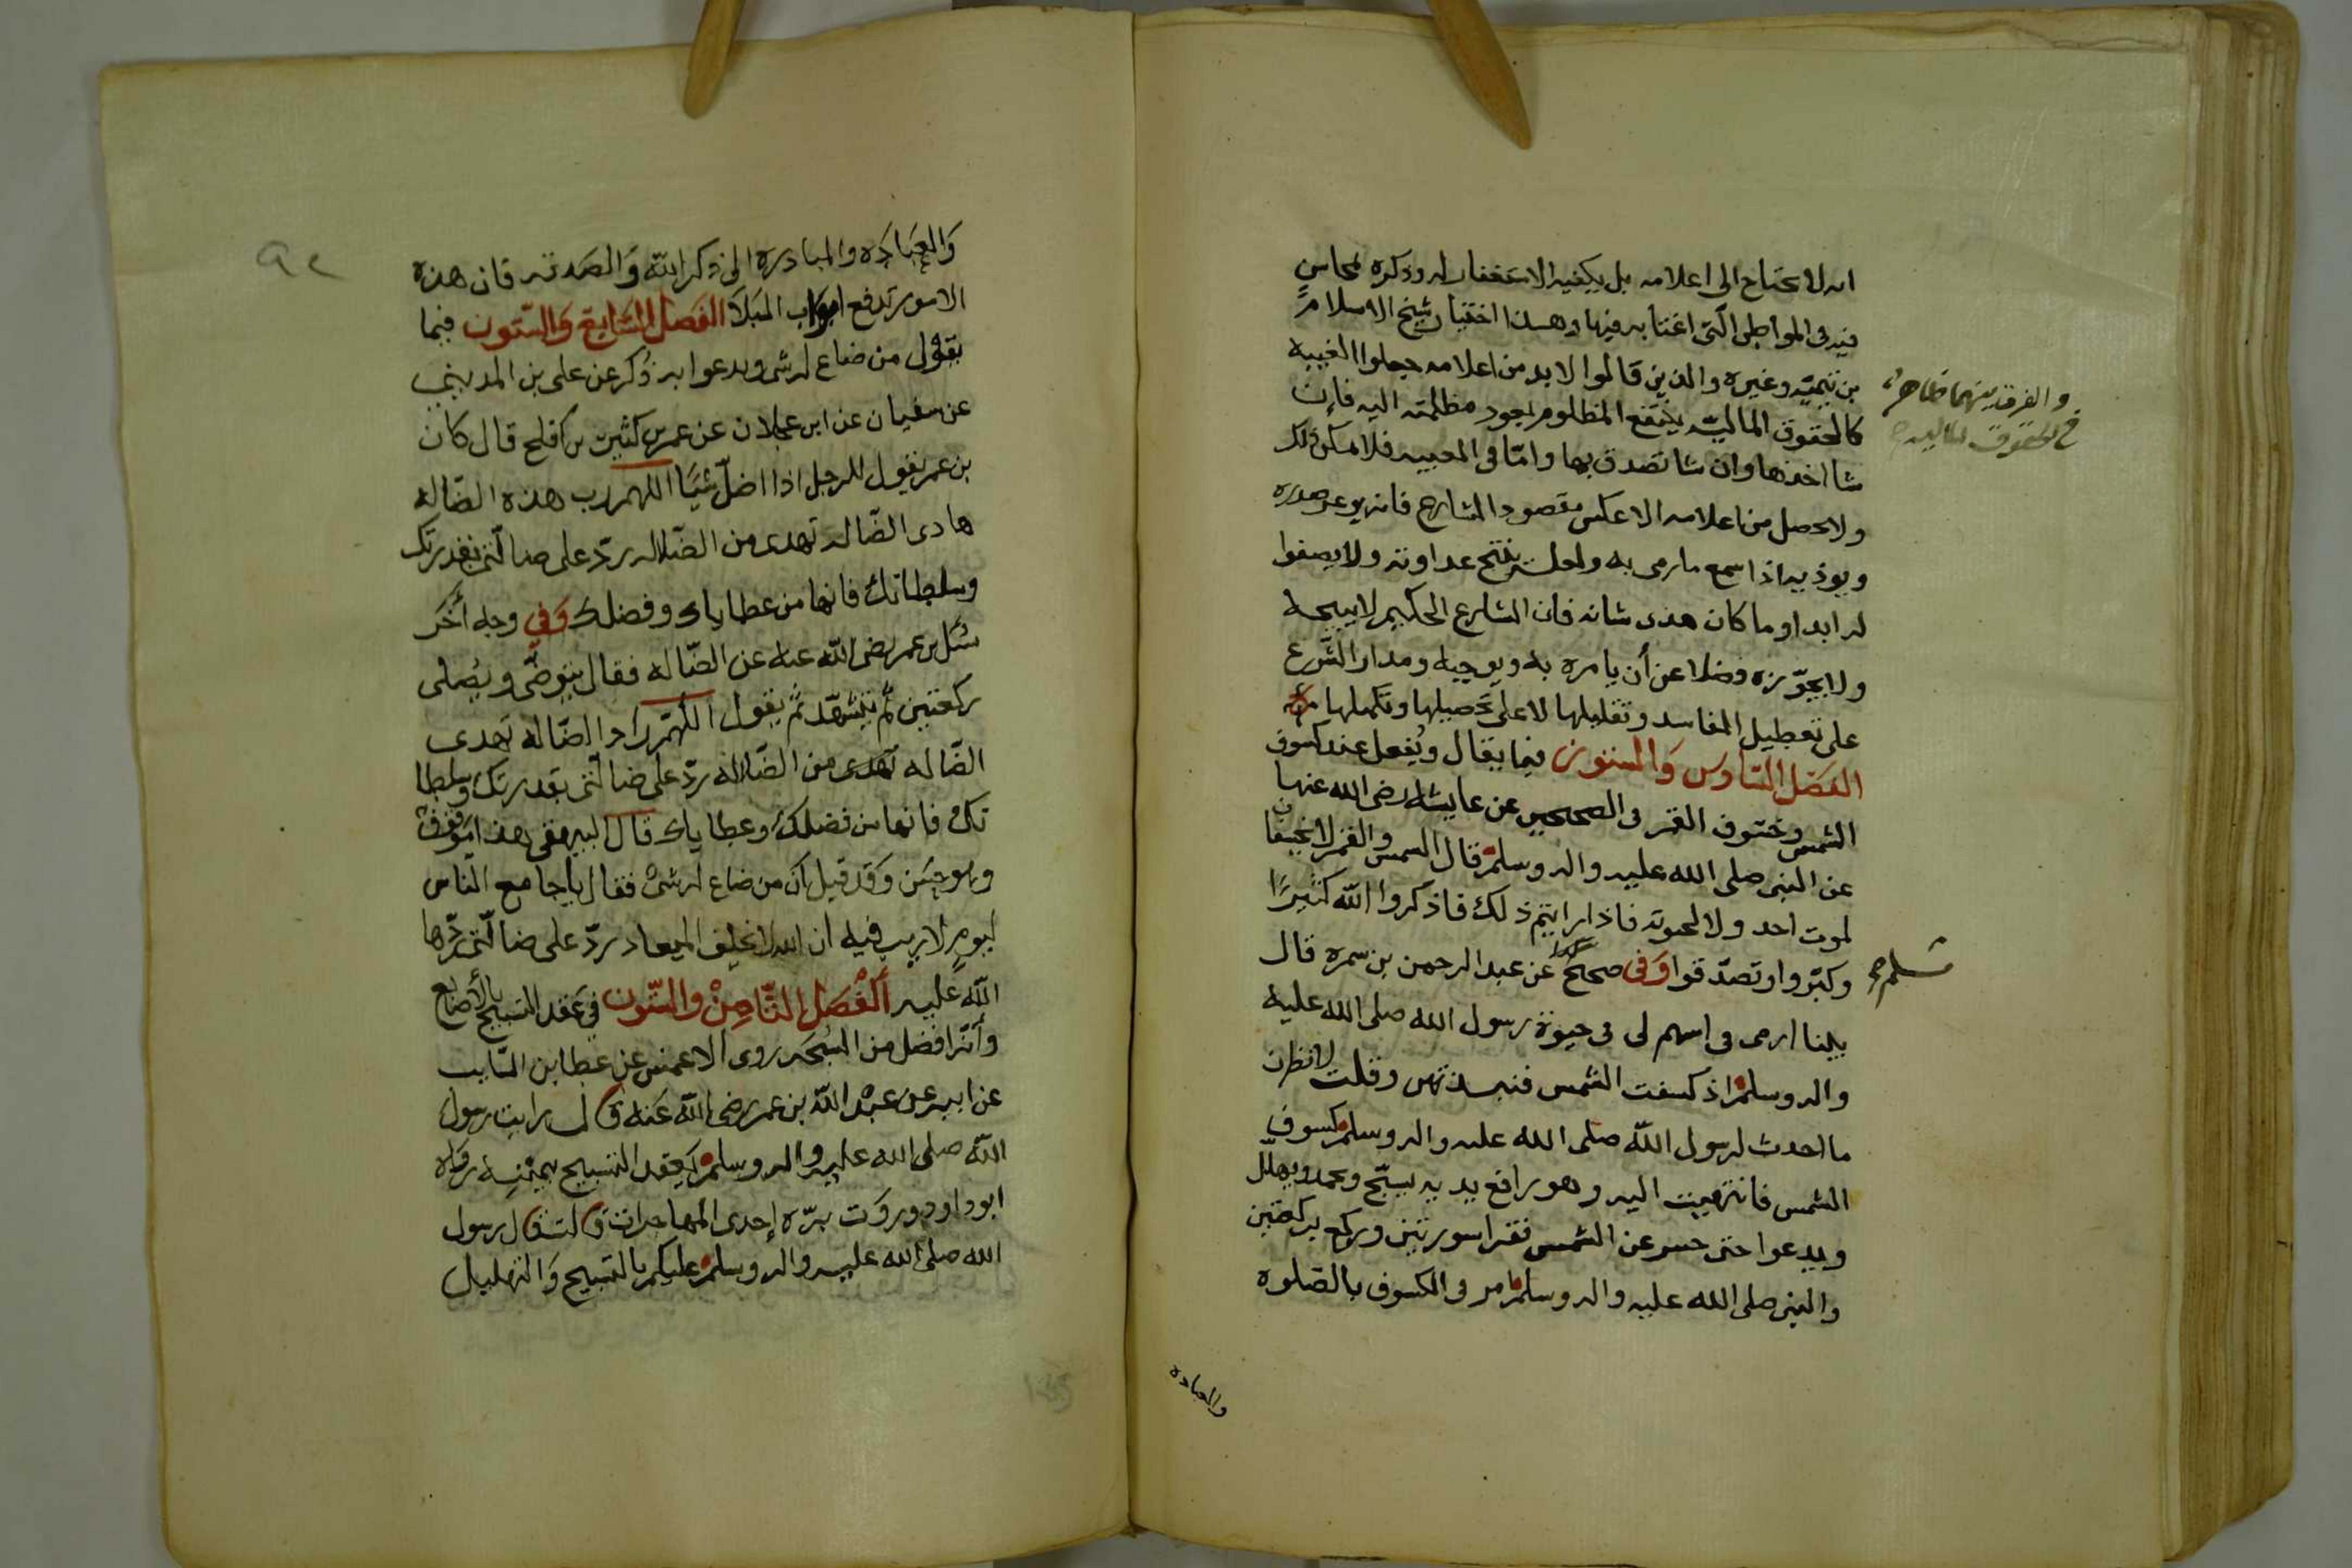 انه لا يحتاج الى اعلامه بل يكفيه الاستغفار له وذكره بمحاسن
فيه فى المواطن الّتى اغتابه فيها وهذا اختيار شيخ الاسلام
بن تيميّه وغيره والذين قالوا لا بد من اعلامه جعلوا الغيبه
كالحقوق الماليّه ينتفع المظلوم بعود مظلمته اليه فإن
شا اخذها وان شا تصدق بها وامّا فى الغيبه فلا يمكن ذلك
ولا يحصل من اعلامه الا عكس مقصود الشارع فانه يوغر صدره
ويوذيه اذا سمع ما رمى به ولعله ينتج عداوته ولا يصفوا
له ابدا وما كان هذى شانه فان الشارع الحكيم لا يبيحه
ولا يجوّزه فضلا عن أن يامره به ويوجبه ومدار الشّرع
على تعطيل المفاسد وتقليلها لا على تحصيلها وتكميلها
الفصل السّادس والستون فيما يقال ويُفعل عند كسوف
الشمس وخسوف القمر فى الصحيحين عن عايشه رضى الله عنها
عن النبى صلى الله عليه واله وسلم قال الشمس والقمر لا يخسفان
لموت احد ولا لحيوته فاذا رايتم ذلك فاذكروا الله كثيرًا
وكبّروا وتصدّقوا وَفى صحيح عن عبد الرحمن بن سمره قال
بينا ارمى فى اسهم لى فى حيوة رسول الله صلى الله عليه
واله وسلم اذ كسفت الشمس فنبذتهن وقلت لانظرن
ما احدث لرسول الله صلى الله عليه واله وسلم كسوف
الشمس فانتهيت اليه وهو رافع يديه يسبّح ويحمد ويهلل
ويدعوا حتى حسر عن الشمس فقرا سورتين وركع ركعتين
والنبى صلى الله عليه واله وسلم امر فى الكسوف بالصّلوه
والفرق بينهما ظاهر
فى الحقوق الماليه
مسلم
والعباده
٩٢
وَالعبَادَه والمبادره الى ذكر الله وَالصّدقه فان هذه
الامور تدفع ابواب البَلا الفَصل السّابع وَالسّتون فيما
يقول من ضاع له شى ويدعوا به ذُكر عن على بن المدينى
عن سفيان عن ابن عجلان عن عمر بن كثير بن افلح قال كان
بن عمر يقول للرجل اذا اضلّ شيًا اللهم رب هذه الضّاله
هادى الضّاله تهدى من الضّلاله ردّ على ضالّتى بقدرتك
وسلطانك فانها من عطاياك وفضلك وَفى وجه أخر
سُئل بن عمر رضى الله عنه عن الضّاله فقال يتوضّى ويُصلى
ركعتين ثم يتشهّد ثم يقول اللهمّ رادّ الضّاله تهدى
الضّاله تهدى من الضّلاله ردّ على ضالّتى بقدرتك وسلطا
نك فانها من فضلك وعطاياك قال البيهقى هذا موقوف
وهو حسَن وَقَد قيل ان من ضاع له شىْ فقال يا جامع الناس
ليومٍ لا ريب فيه ان الله لا يخلف الميعاد ردّ على ضالّتى ردّها
الله عليه اَلْفَصَل الثّامِنْ والسّتون فى عَقد التسبيح بالأصابع
وأنّه افضل من السُبحه روى الاعمش عن عطا بن السّايب
عن ابيه عن عبْد الله بن عمر رضى الله عَنه قال رايت رسول
الله صلى الله عليه واله وسلم يَعقد التسبيح بيمنِه رَواه
ابو داود وروَت يسرّه إحدى المهاجرات قالت قال رسول
الله صلى الله عليه واله وسلم عليكم بالتسبيح وَالتهليل